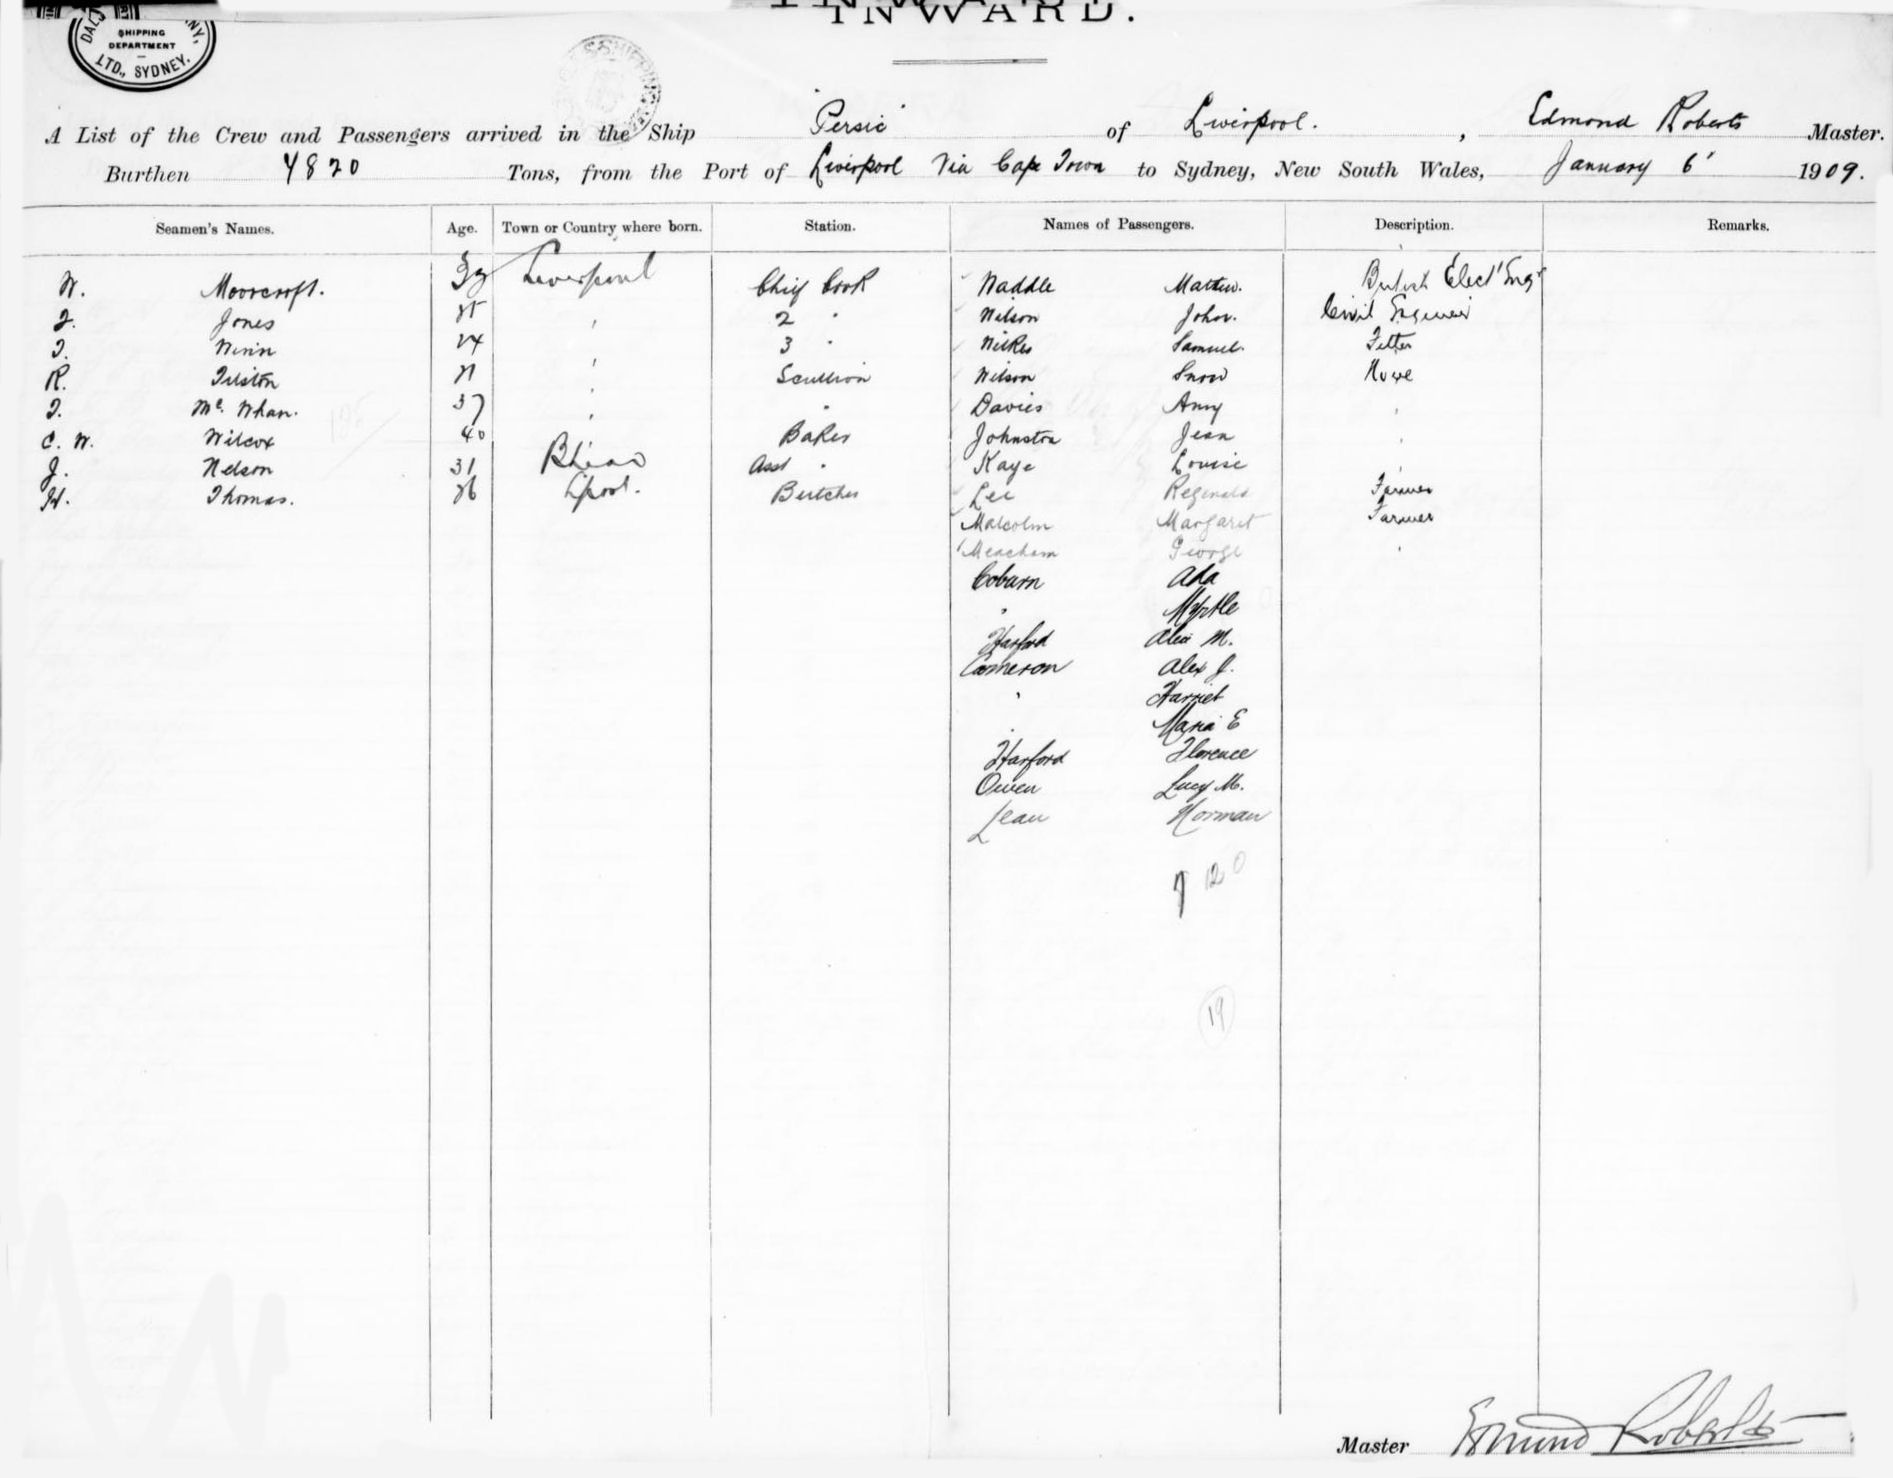 INWARD.
SHIPPING
DEPARTMENT
LTD., SYDNEY.
A List of the Crew and Passengers arrived in the Ship "Persic" of Liverpool. , Edmond Roberts Master.
Burthen 4820 Tons, from the Port of Liverpool Via Cape Town to Sydney, New South Wales, January 6' 1909.
Seamen's Names. Age. Town or Country where born. Station. Names of Passengers. Description. Remarks.
W. Moorcroft. Liverpool Chief Cook Naddle Matthew. British Elect' Eng'
Jones " 2 " Wilson John. Civil Engineer
24 " 3 " Wilkes Samuel. Fitter
R. Tilston 21 " Scullion Wilson Snow
Mc. Whan. 37 " " Davies Amy "
C. W. Wilcox 40 Baker Johnston Jean "
J. Nelson 31 B'Head Asst " Kaye Louise "
H. Thomas. 26 L'pool. Butcher Lee Reginald Farmer
Malcolm Margaret Farmer
Meacham George "
Coburn Ada
" Myrtle
Harford M.
Cameron Alex J.
" Harriet
" Maria E
Harford Florence
Owen Lucy M.
Lean Norman
120
19
Master Edmond Roberts